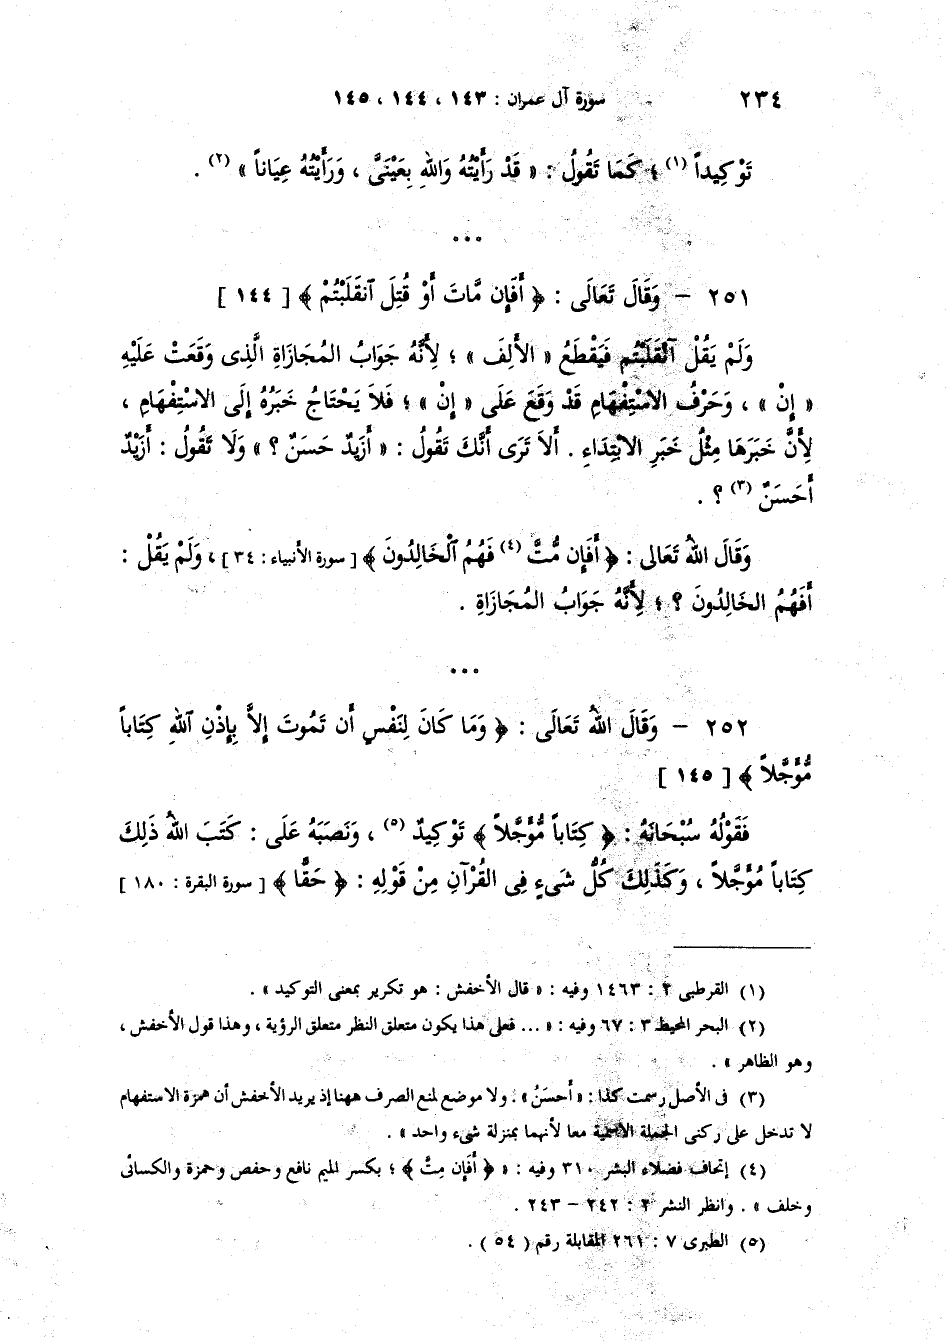 ٢٣٤ سورة آل عمران : ١٤٣ ، ١٤٤ ، ١٤٥
تَوْكِيداً (١) ؛ كَمَا تَقُولُ : « قَدْ رَأَيْتُهُ وَاللهِ بِعَيْنَىَّ ، وَرَأَيْتُهُ عِيَاناً » (٢) .
...
٢٥١ – وَقَالَ تَعَالَى : ﴿ أَفَإِن مَّاتَ أَوْ قُتِلَ ٱنقَلَبْتُمْ ﴾ [ ١٤٤ ]
وَلَمْ يَقُلْ ٱنْقَلَبْتُم فَيَقْطَعُ « الأَلِفَ » ؛ لِأَنَّهُ جَوَابُ المُجَازَاةِ الَّذِى وَقَعَتْ عَلَيْهِ
« إِنْ » ، وَحَرْفُ الاسْتِفْهَامِ قَدْ وَقَعَ عَلَى « إِنْ » ؛ فَلاَ يَحْتَاجُ خَبَرُهُ إِلَى الاسْتِفْهَامِ ،
لِأَنَّ خَبَرَهَا مِثْلُ خَبَرِ الابْتِدَاءِ . أَلاَ تَرَى أَنَّكَ تَقُولُ : « أَزَيدٌ حَسَنٌ ؟ » وَلَا تَقُولُ : أَزَيْدٌ
أَحَسَنٌ (٣) ؟ .
وَقَالَ اللهُ تَعَالى : ﴿ أَفَإِن مُّتَّ (٤) فَهُمُ ٱلْخَالِدُونَ ﴾ [ سورة الأنبياء : ٣٤ ] ، وَلَمْ يَقُلْ :
أَفَهُمُ الخَالِدُونَ ؟ ؛ لِأَنَّهُ جَوَابُ المُجَازَاةِ .
...
٢٥٢ – وَقَالَ اللهُ تَعَالَى : ﴿ وَمَا كَانَ لِنَفْسٍ أَن تَمُوتَ إِلاَّ بِإِذْنِ ٱللهِ كِتَاباً
مُّؤَجَّلاً ﴾ [ ١٤٥ ]
فَقَوْلُهُ سُبْحَانَهُ : ﴿ كِتَاباً مُّؤَجَّلاً ﴾ تَوْكِيدٌ (٥) ، وَنَصَبَهُ عَلَى : كَتَبَ اللهُ ذَلِكَ
كِتَاباً مُؤَجَّلاً ، وَكَذَلِكَ كُلُّ شَىءٍ فِى القُرْآنِ مِنْ قَوْلِهِ : ﴿ حَقًّا ﴾ [ سورة البقرة : ١٨٠ ]
(١) القرطبى ٢ : ١٤٦٣ وفيه : « قال الأخفش : هو تكرير بمعنى التوكيد » .
(٢) البحر المحيط ٣ : ٦٧ وفيه : « ... فعلى هذا يكون متعلق النظر متعلق الرؤية ، وهذا قول الأخفش ،
وهو الظاهر » .
(٣) فى الأصل رسمت كذا : « أحسَنُ » . ولا موضع لمنع الصرف ههنا إذ يريد الأخفش أن همزة الاستفهام
لا تدخل على ركنى الجملة الاسمية معا لأنهما بمنزلة شىء واحد » .
(٤) إتحاف فضلاء البشر ٣١٠ وفيه : « ﴿ أَفَإِن مِتَّ ﴾ ؛ بكسر الميم نافع وحفص وحمزة والكسائى
وخلف » . وانظر النشر ٢ : ٢٤٢ – ٢٤٣ .
(٥) الطبرى ٧ : ٢٦١ المقابلة رقم ( ٥٤ ) .